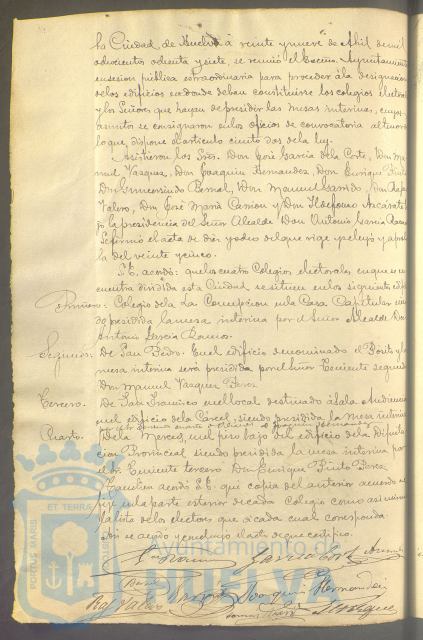 la Ciudad de Huelva á veinte y nueve de Abril de mil
ochocientos ochenta y siete, se reunió el Excmo. Ayuntamiento
en sesion pública extraordinaria para proceder á la designacion
de los edificios en donde deban constituirse los colegios electora
y los Señores que hayan de presidir las mesas interinas, cuyos
asuntos se consignaron en los oficios de convocatoria al tenor de
lo que dispone el articulo ciento dos de la ley.
Asistieron los Sres. Don José Garcia de la Corte, Don Ma
nuel Vazquez, Don Joaquin Hernandez, Don Enrique Pinto
Don Gumersindo Bernal, Don Manuel Garrido, Don Rafael
Valero, Don José María Carrion y Don Ildefonso
jo la presidencia del Señor Alcalde Don Antonio Garcia Ramos
Se firmó el acta de diez y ocho del que rige y se leyó y apro
la del veinte y cinco.
S.E. acordó: que los cuatro Colegios electorales, en que se en
cuentra dividida esta Ciudad se situen en los siguientes edifi
Primero: Colegio de la Concepcion en la Casa Capitular sien
do presidida la mesa interina por el Señor Alcalde Don
Antonio Garcia Ramos.
Segundo: De San Pedro: En el edificio denominado el Pósito y la
mesa interina será presidida por el Señor Teniente segundo
Don Manuel Vazquez Perez.
Tercero. De San Francisco en el local destinado á sala Audiencia
en el edificio de la Cárcel, siendo presidida la mesa interina
Cuarto. De la Merced, en el piso bajo del edificio de la Diputa
cion Provincial siendo presidida la mesa interina por
el Sr. Teniente tercero Don Enrique Pinto Perez
Tambien acordó S.E. que copia del anterior acuerdo se
fije en la parte exterior de cada Colegio como asi mismo
la lista de los electores que á cada cual corresponda.
Asi se acordó y concluyó el acto de que certifico.
Joaquin Hernandez
Raf Valero
PORTUS MARIS ET TERRÆ
Ayuntamiento de
HUELVA